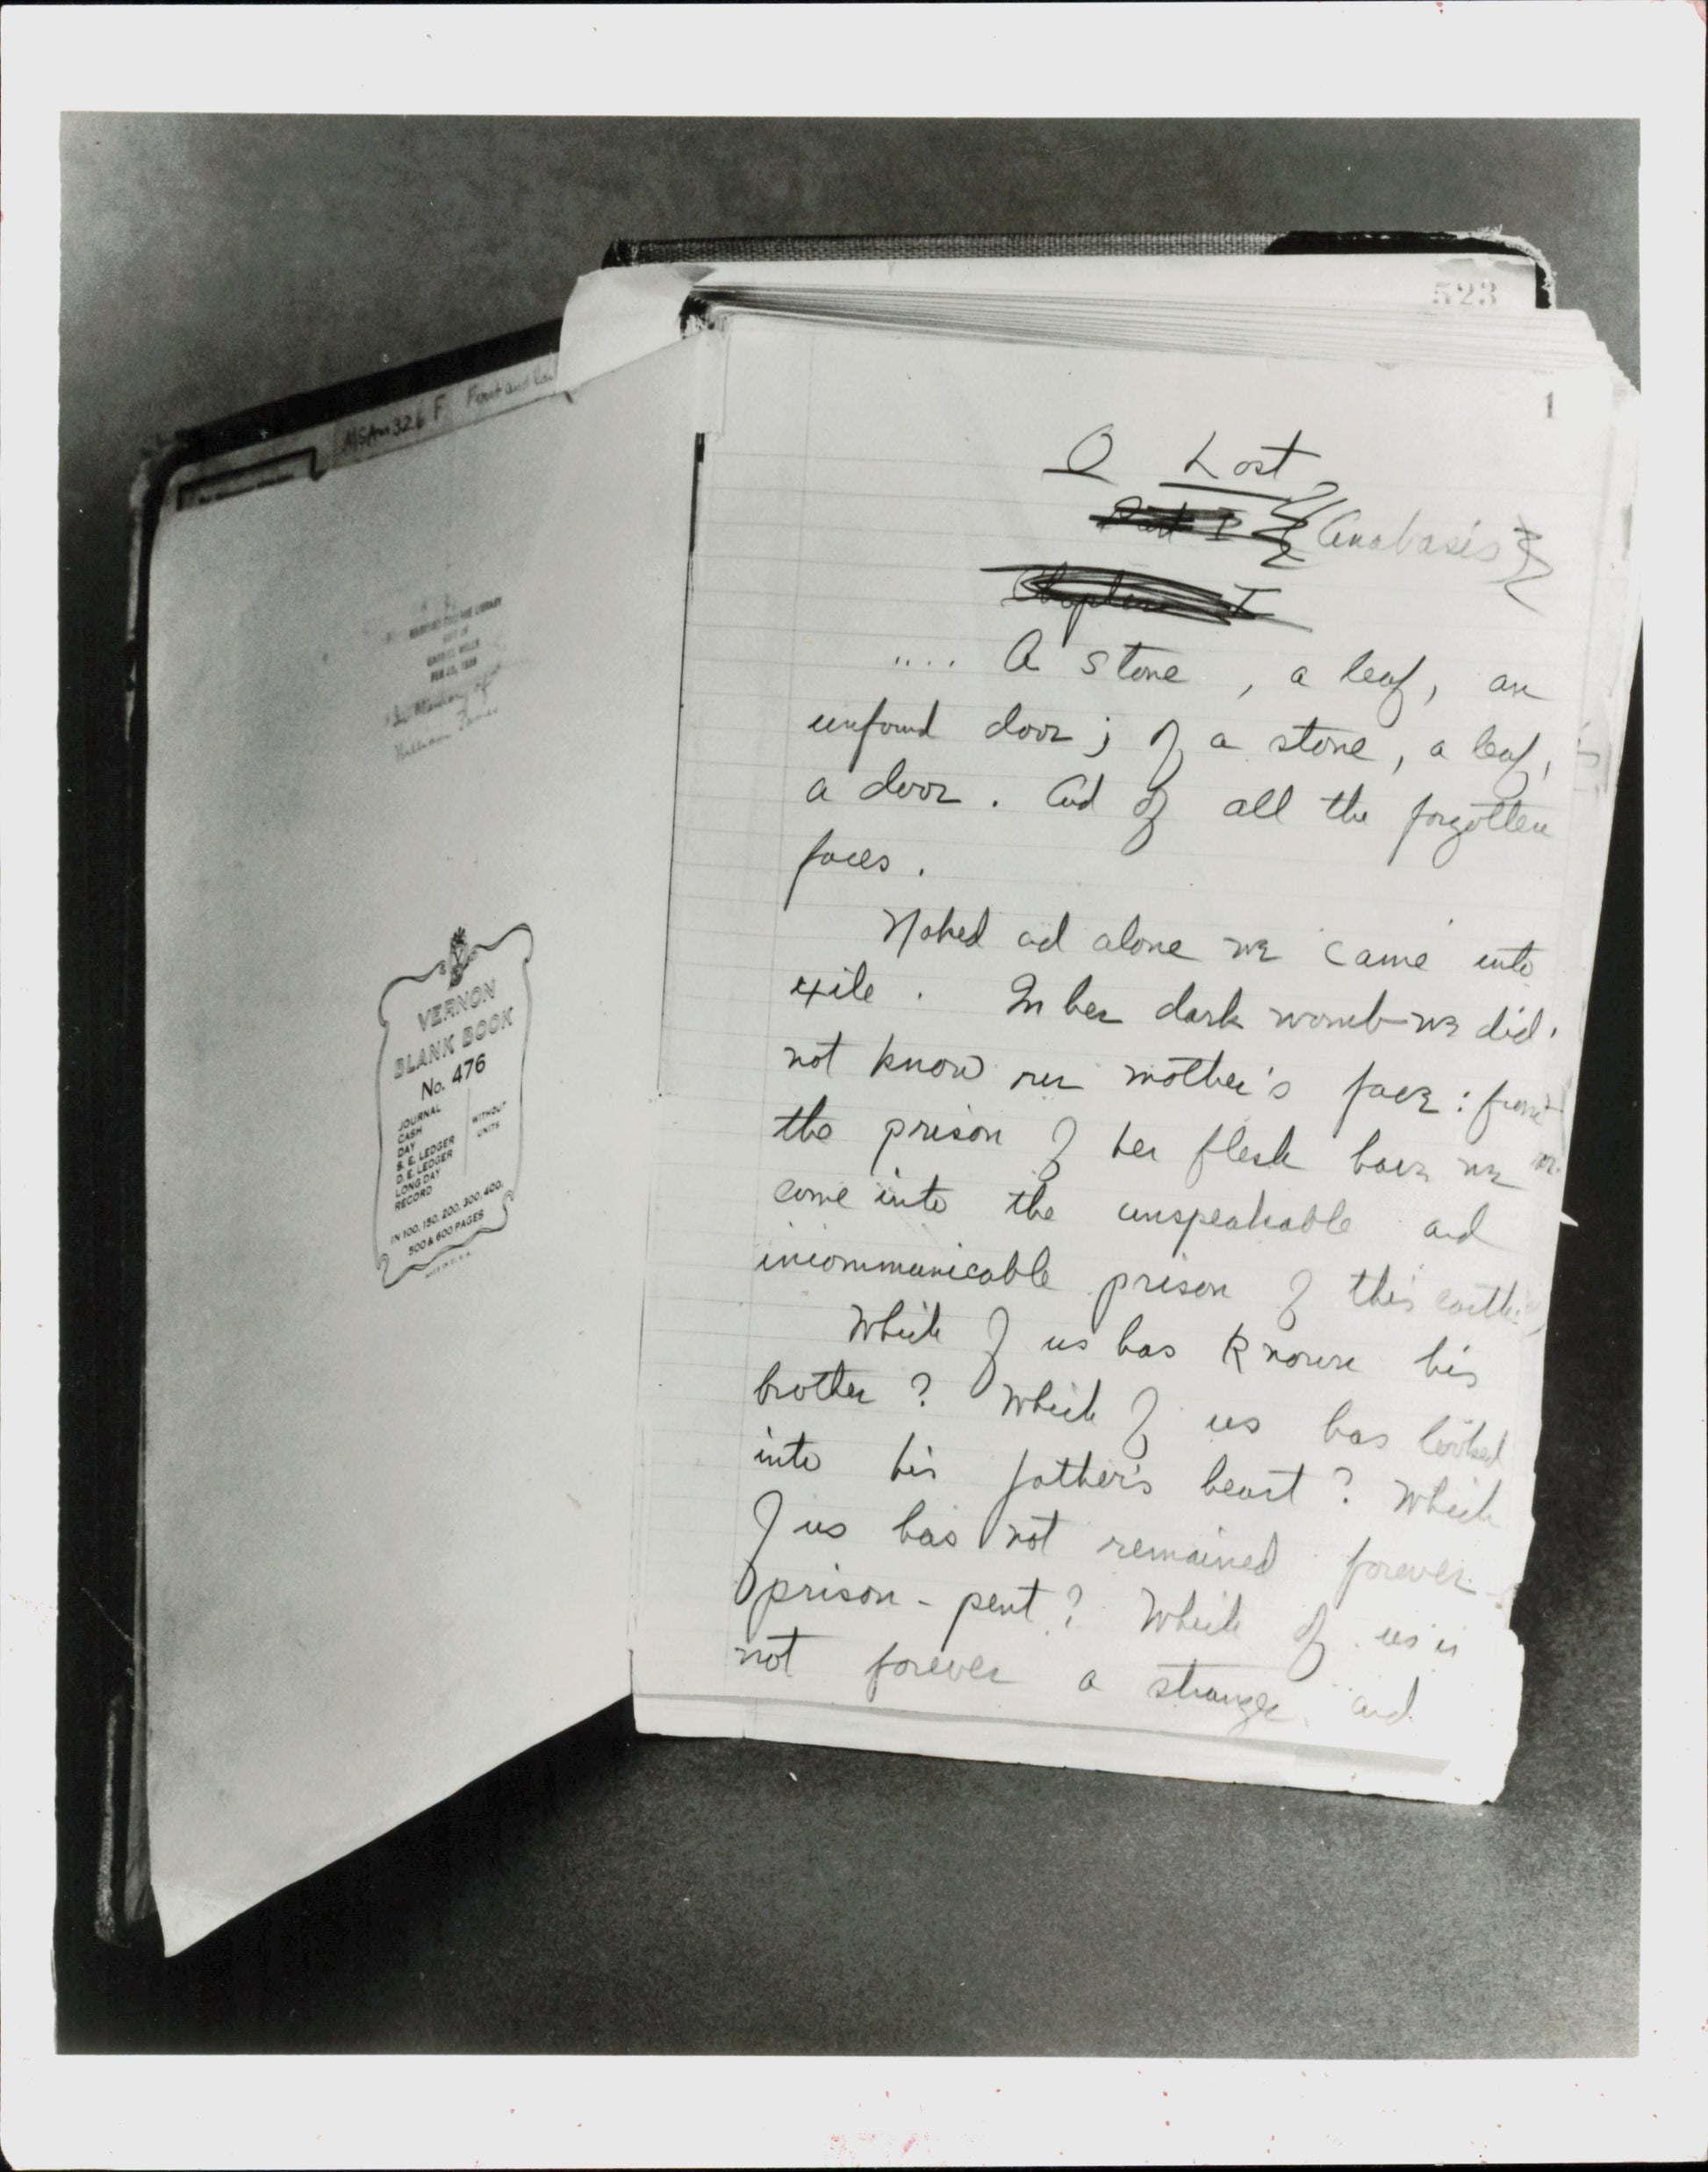 MSAm 326 F
LIBRARY
GIFT OF
GABRIEL WELLS
In Memory of
William James
VERNON
BLANK BOOK
No. 476
JOURNAL
CASH
DAY
S. E. LEDGER
D. E. LEDGER
LONG DAY
RECORD
WITHOUT
UNITS
IN 100, 150, 200, 300, 400,
500 & 600 PAGES
MADE IN U.S.A.
523
1
O Lost
Part I (Anabasis)
Chapter I
.... A stone, a leaf, an
unfound door; of a stone, a leaf,
a door. And of all the forgotten
faces.
Naked and alone we came into
exile. In her dark womb we did
not know our mother's face: from
the prison of her flesh have we
come into the unspeakable and
incommunicable prison of this earth.
Which of us has known his
brother? Which of us has looked
into his father's heart? Which
of us has not remained forever
prison-pent? Which of us is
not forever a stranger and